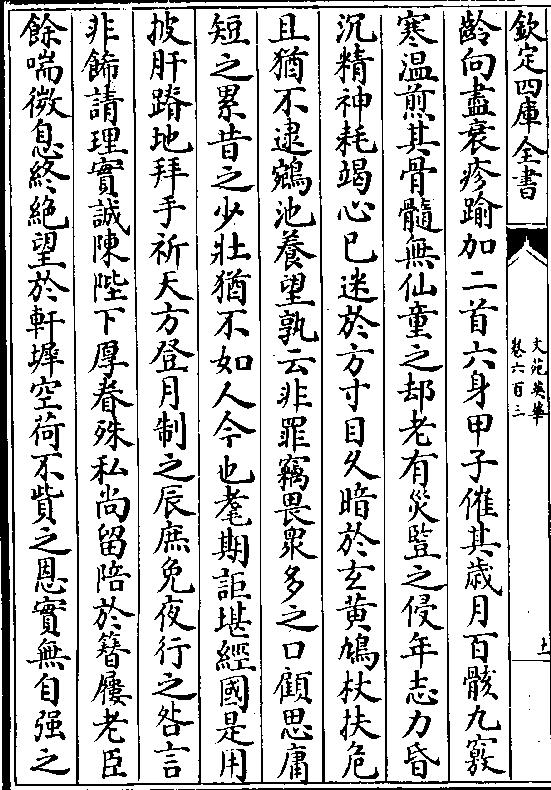 欽定四庫全書
文苑英華
卷六百三
十
齡向盡衰疹踰加二首六身甲子催其歳月百骸九竅
寒温煎其骨髓無仙童之却老有災豎之侵年志力昏
沉精神耗竭心已迷於方寸目久暗於玄黄鳩杖扶危
且猶不逮鵷池養望孰云非罪竊畏衆多之口顧思庸
短之累昔之少壮猶不如人今也耄期詎堪經國是用
披肝蹐地拜手祈天方登月制之辰庶免夜行之咎言
非飾請理實誠陳陛下厚眷殊私尚留陪於簪屨老臣
餘喘微息終絶望於軒墀空荷不貲之恩實無自强之